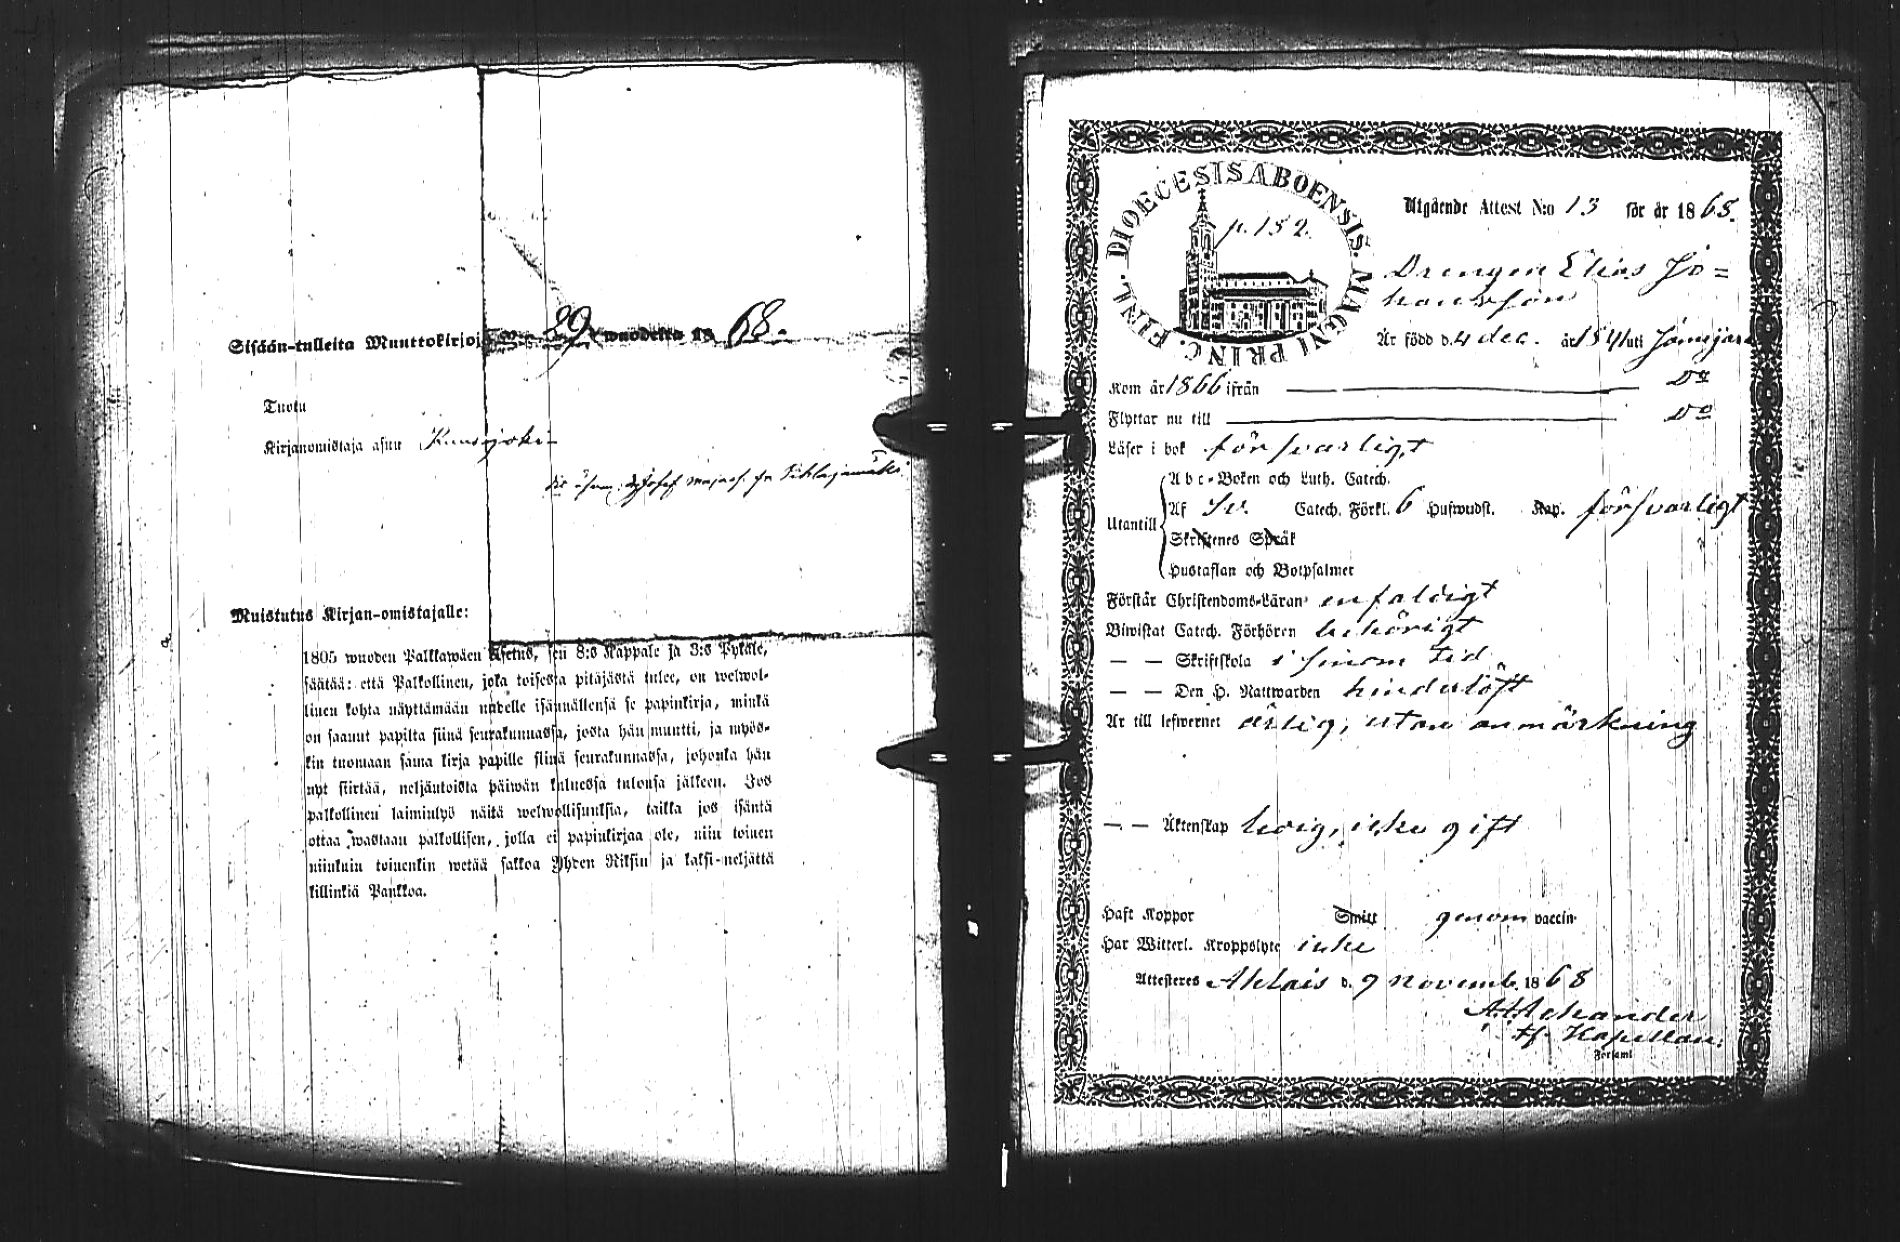 Sisään-tulleita Muuttokirjoja N:o 29 wuodelta 18 68.
Tuotu
Kirjanomistaja asuu Kuusjoki
Josef
Muistutus Kirjan-omistajalle:
1805 wuoden Palkkawäen Asetus, sen 8:s Kappale ja 3:s Pykäle,
säätää: että Palkollinen, joka toisesta pitäjästä tulee, on welwol-
linen kohta näyttämään uudelle isännällensä se papinkirja, minkä
on saanut papilta siinä seurakunnassa, josta hän muutti, ja myös-
kin tuomaan sama kirja papille siinä seurakunnassa, johonka hän
nyt siirtää, neljäntoista päiwän kuluessa tulonsa jälkeen. Jos
palkollinen laiminlyö näitä welwollisuuksia, taikka jos isäntä
ottaa wastaan palkollisen, jolla ei papinkirjaa ole, niin toinen
niinkuin toinenkin wetää sakkoa Yhden Riksin ja kaksi-neljättä
killinkiä Pankkoa.
DIOECESIS ABOENSIS. MAGNI PRINC. FINL.
p. 152.
Utgående Attest N:o 13 för år 18 68.
Drengen Elias Jo=
hansson
Är född d. 4 dec. år 1841 uti
Kom år 1866 ifrån Do
Flyttar nu till Do
Läser i bok försvarligt
Utantill
Abc-Boken och Luth. Catech.
Af Sv. Catech. Förkl. 6 Hufwudst. Kap. försvarligt
Skriftenes Språk
Hustaflan och Botpsalmer
Förstår Christendoms-Läran enfaldigt
Biwistat Catech. Förhören behörigt
— — Skriftskola i sinom tid
— — Den H. Nattwarden hinderlöst
Är till lefwernet ärlig, utan anmärkning
— — Äktenskap ledig, icke gift
Haft Koppor Smitt genom vaccin
Har Witterl. Kroppslyte icke
Attesteres Aklais d. 9 Novemb. 18 68
tf. Kapellan.
Församl